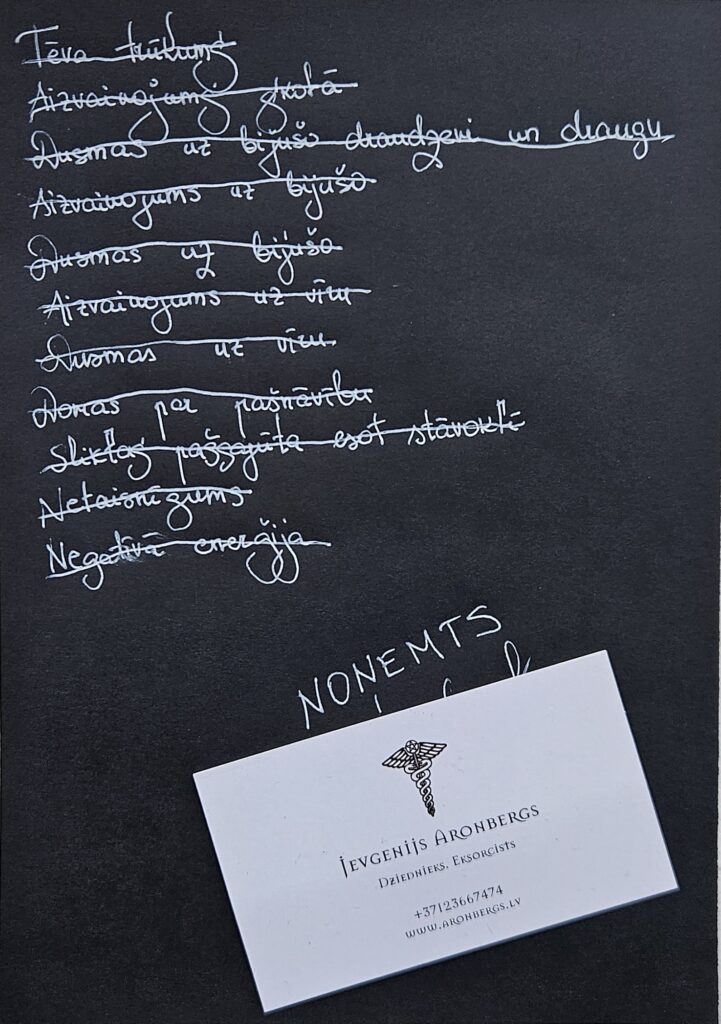 Tēva trūkums
Aizvainojums skolā
Dusmas uz bijušo draudzeni un draugu
Aizvainojums uz bijušo
Dusmas uz bijušo
Aizvainojums uz vīru
Dusmas uz vīru
Domas par pašnāvību
Sliktas pašsajūta esot stāvoklī
Netaisnīgums
Negatīvā enerģija
NOŅEMTS
Jevgenijs Aronbergs
Dziednieks, Eksorcists
+37123667474
www.aronbergs.lv